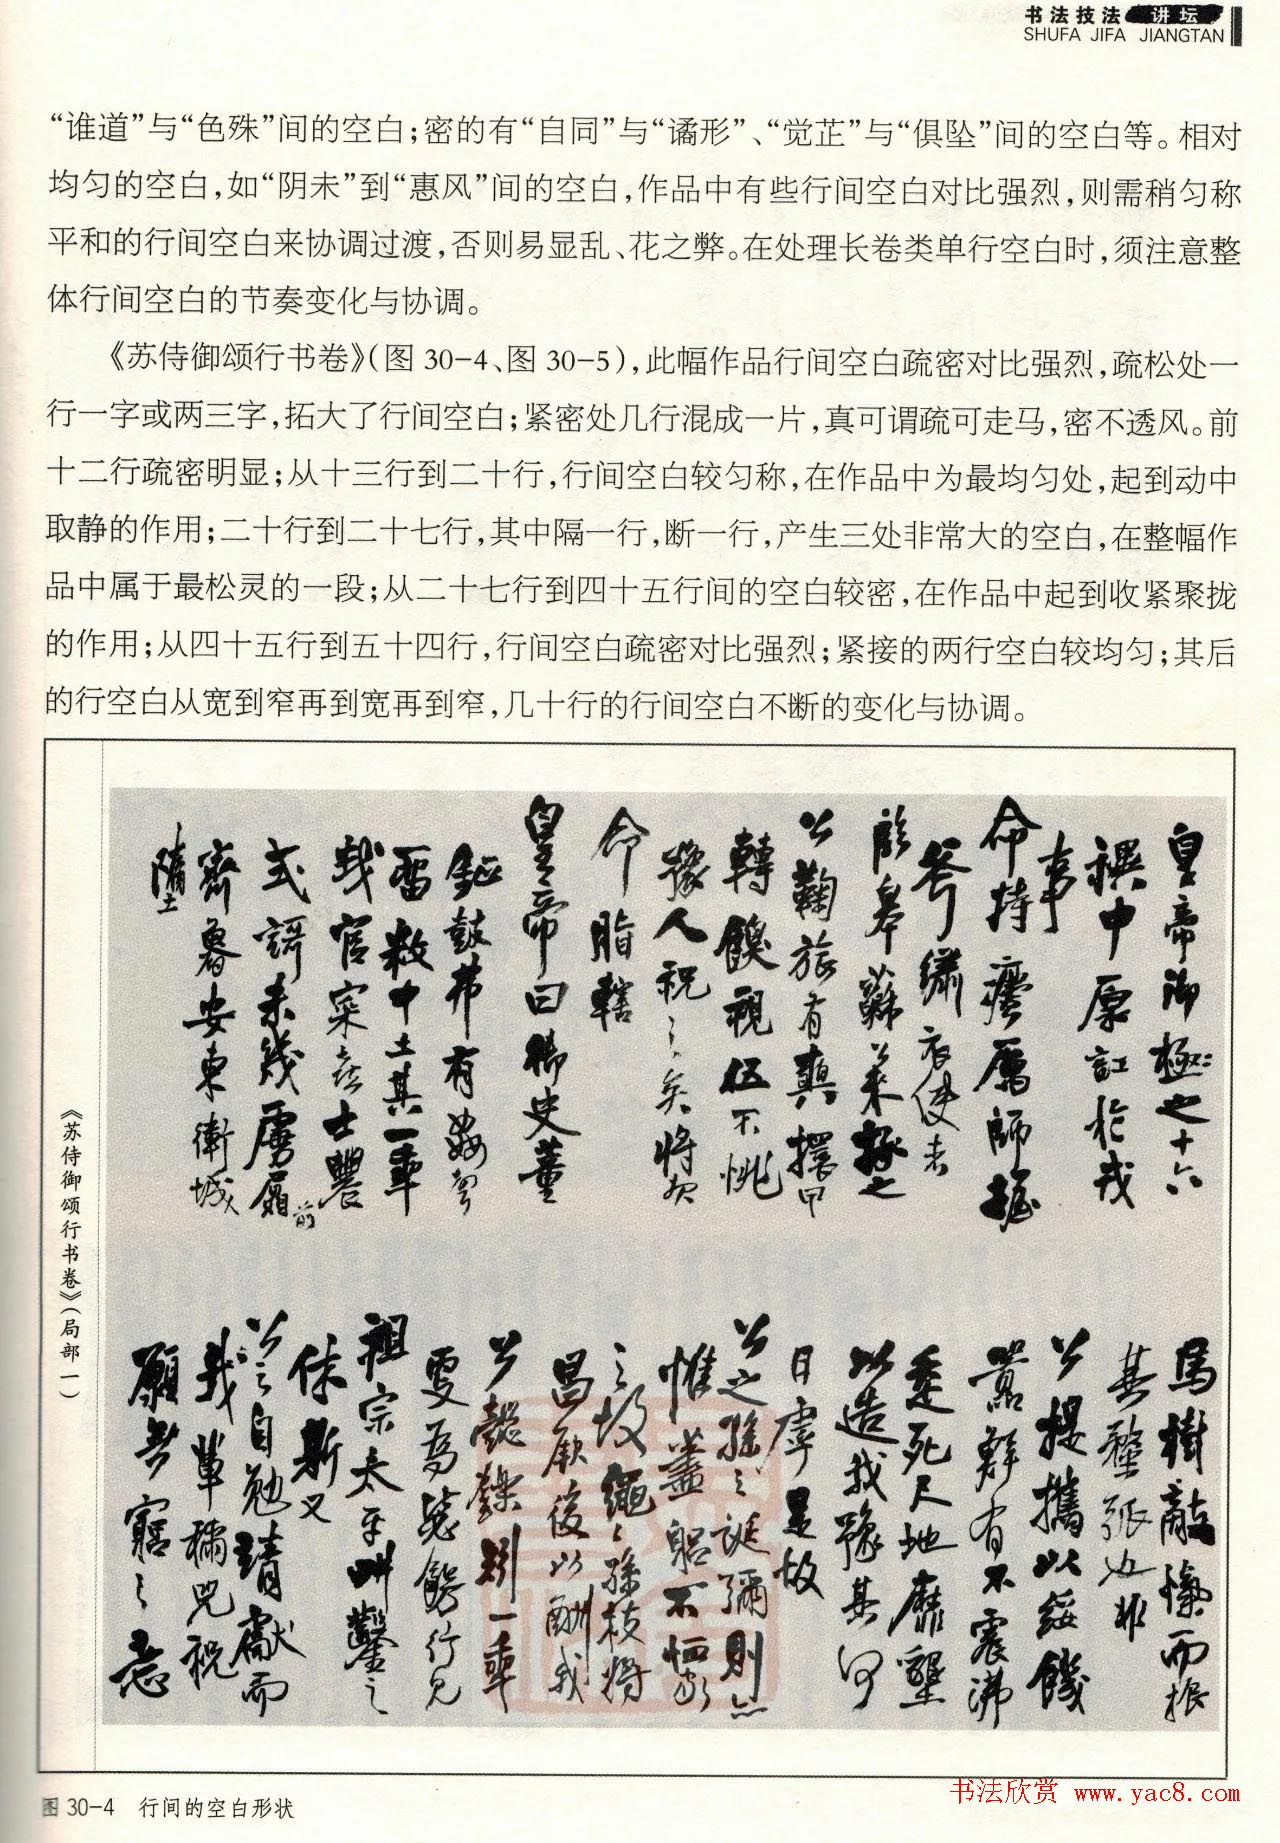 书法技法 讲坛
SHUFA JIFA JIANGTAN
“谁道”与“色殊”间的空白；密的有“自同”与“谲形”、“觉芷”与“俱坠”间的空白等。相对
均匀的空白，如“阴未”到“惠风”间的空白，作品中有些行间空白对比强烈，则需稍匀称
平和的行间空白来协调过渡，否则易显乱、花之弊。在处理长卷类单行空白时，须注意整
体行间空白的节奏变化与协调。
《苏侍御颂行书卷》（图 30-4、图 30-5），此幅作品行间空白疏密对比强烈，疏松处一
行一字或两三字，拓大了行间空白；紧密处几行混成一片，真可谓疏可走马，密不透风。前
十二行疏密明显；从十三行到二十行，行间空白较匀称，在作品中为最均匀处，起到动中
取静的作用；二十行到二十七行，其中隔一行，断一行，产生三处非常大的空白，在整幅作
品中属于最松灵的一段；从二十七行到四十五行间的空白较密，在作品中起到收紧聚拢
的作用；从四十五行到五十四行，行间空白疏密对比强烈；紧接的两行空白较均匀；其后
的行空白从宽到窄再到宽再到窄，几十行的行间空白不断的变化与协调。
皇帝御極之十六
禩中原訌於戎
事
命持癉厲師握
斧繡衣使者
公鞠旅有真擐甲
轉餽視伍不恌
豫人祝之矣將
命脂轄
皇帝曰御史董
鉦鼓弗有
雷數中土其一車
哉官寀士
式未幾虜
齊魯安東衛城
隳
馬樹敵愾而振
其弛也非
公提攜以綏饑
有不震沸
垂死尺地靡墾
以造我豫其何
日虔是故
公之孫之誕彌則
惟蓋躬不恤家
之故繩之孫枝將
昌厥後以酬我
公懿鑠引一車
更為行見
祖宗太平
休斯又
公之自勉請獻而
我輩稱兕祝
願無窮之意
《苏侍御颂行书卷》（局部一）
图 30-4 行间的空白形状
书法欣赏 www.yac8.com